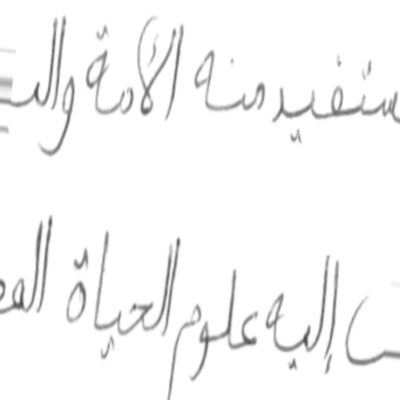 ستفيد منه الأمة وال
إليه علوم الحياة ال